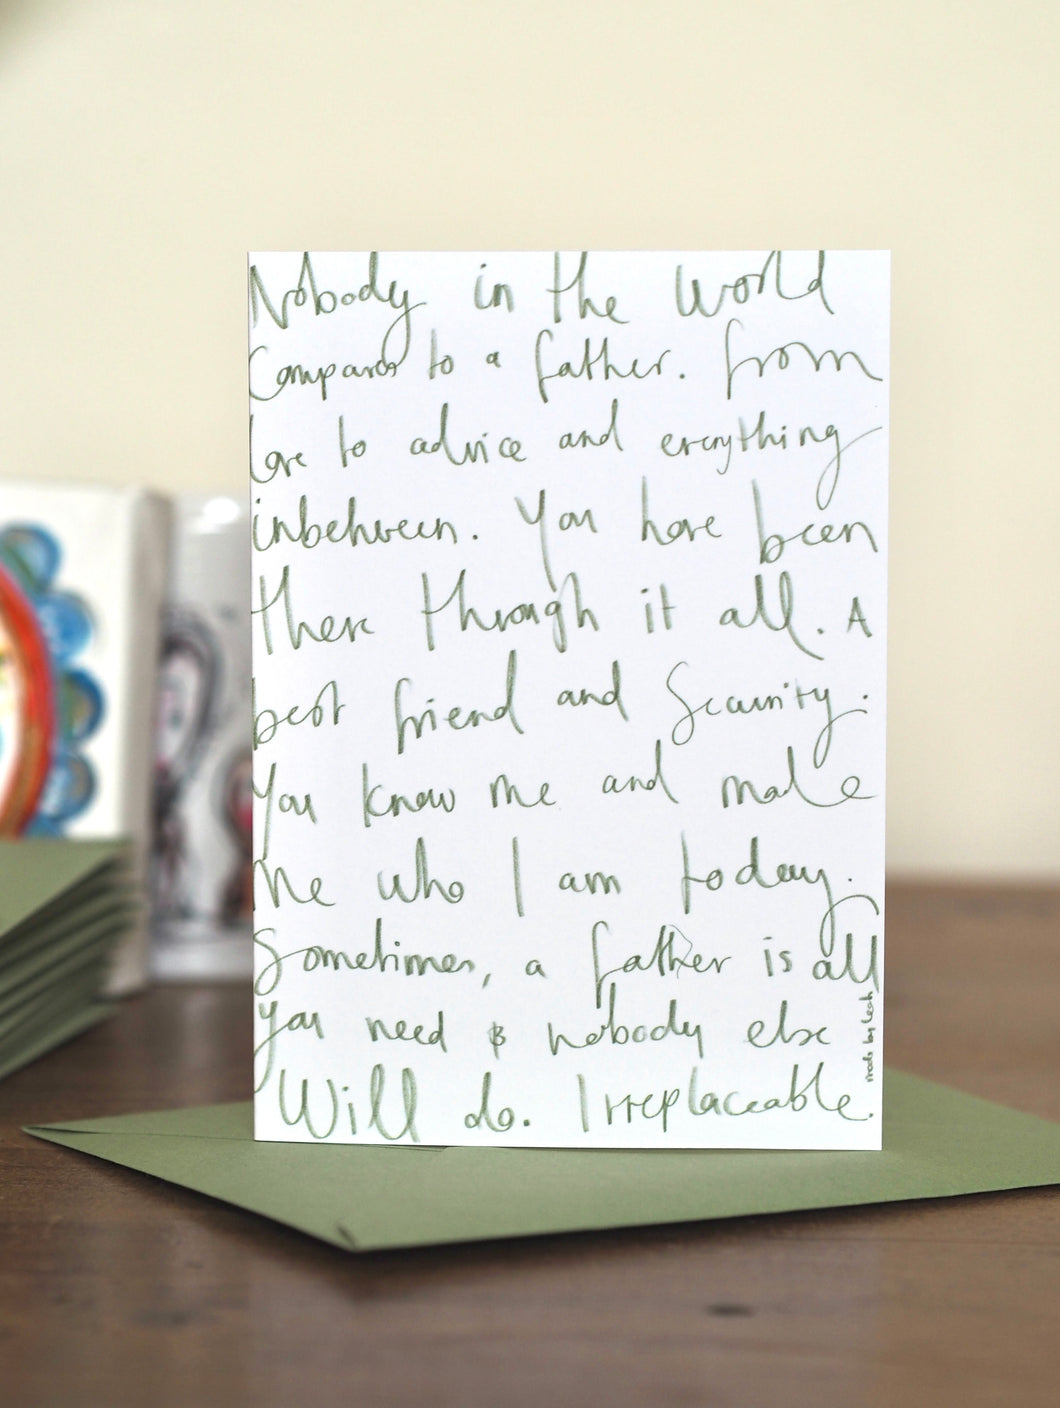 Nobody in the World
Compares to a father. From
love to advice and everything
inbetween. You have been
there through it all. A
best friend and Security.
You know me and make
me who I am today.
Sometimes, a father is all
you need & nobody else
Will do. Irreplaceable.
made by Leah